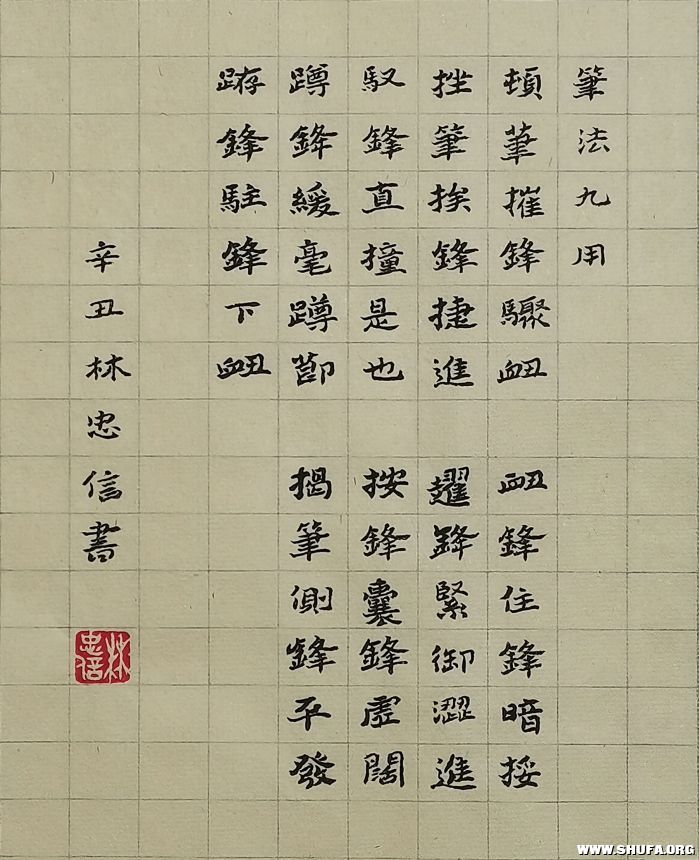 筆法九用
頓筆摧鋒驟衄
挫筆挨鋒捷進
馭鋒直撞是也
蹲鋒緩毫蹲節
鋒駐鋒下衄
衄鋒住鋒暗挼
趯鋒緊御澀進
按鋒囊鋒虛闊
揭筆側鋒平發
辛丑林忠信書
林忠信
WWW.SHUFA.ORG